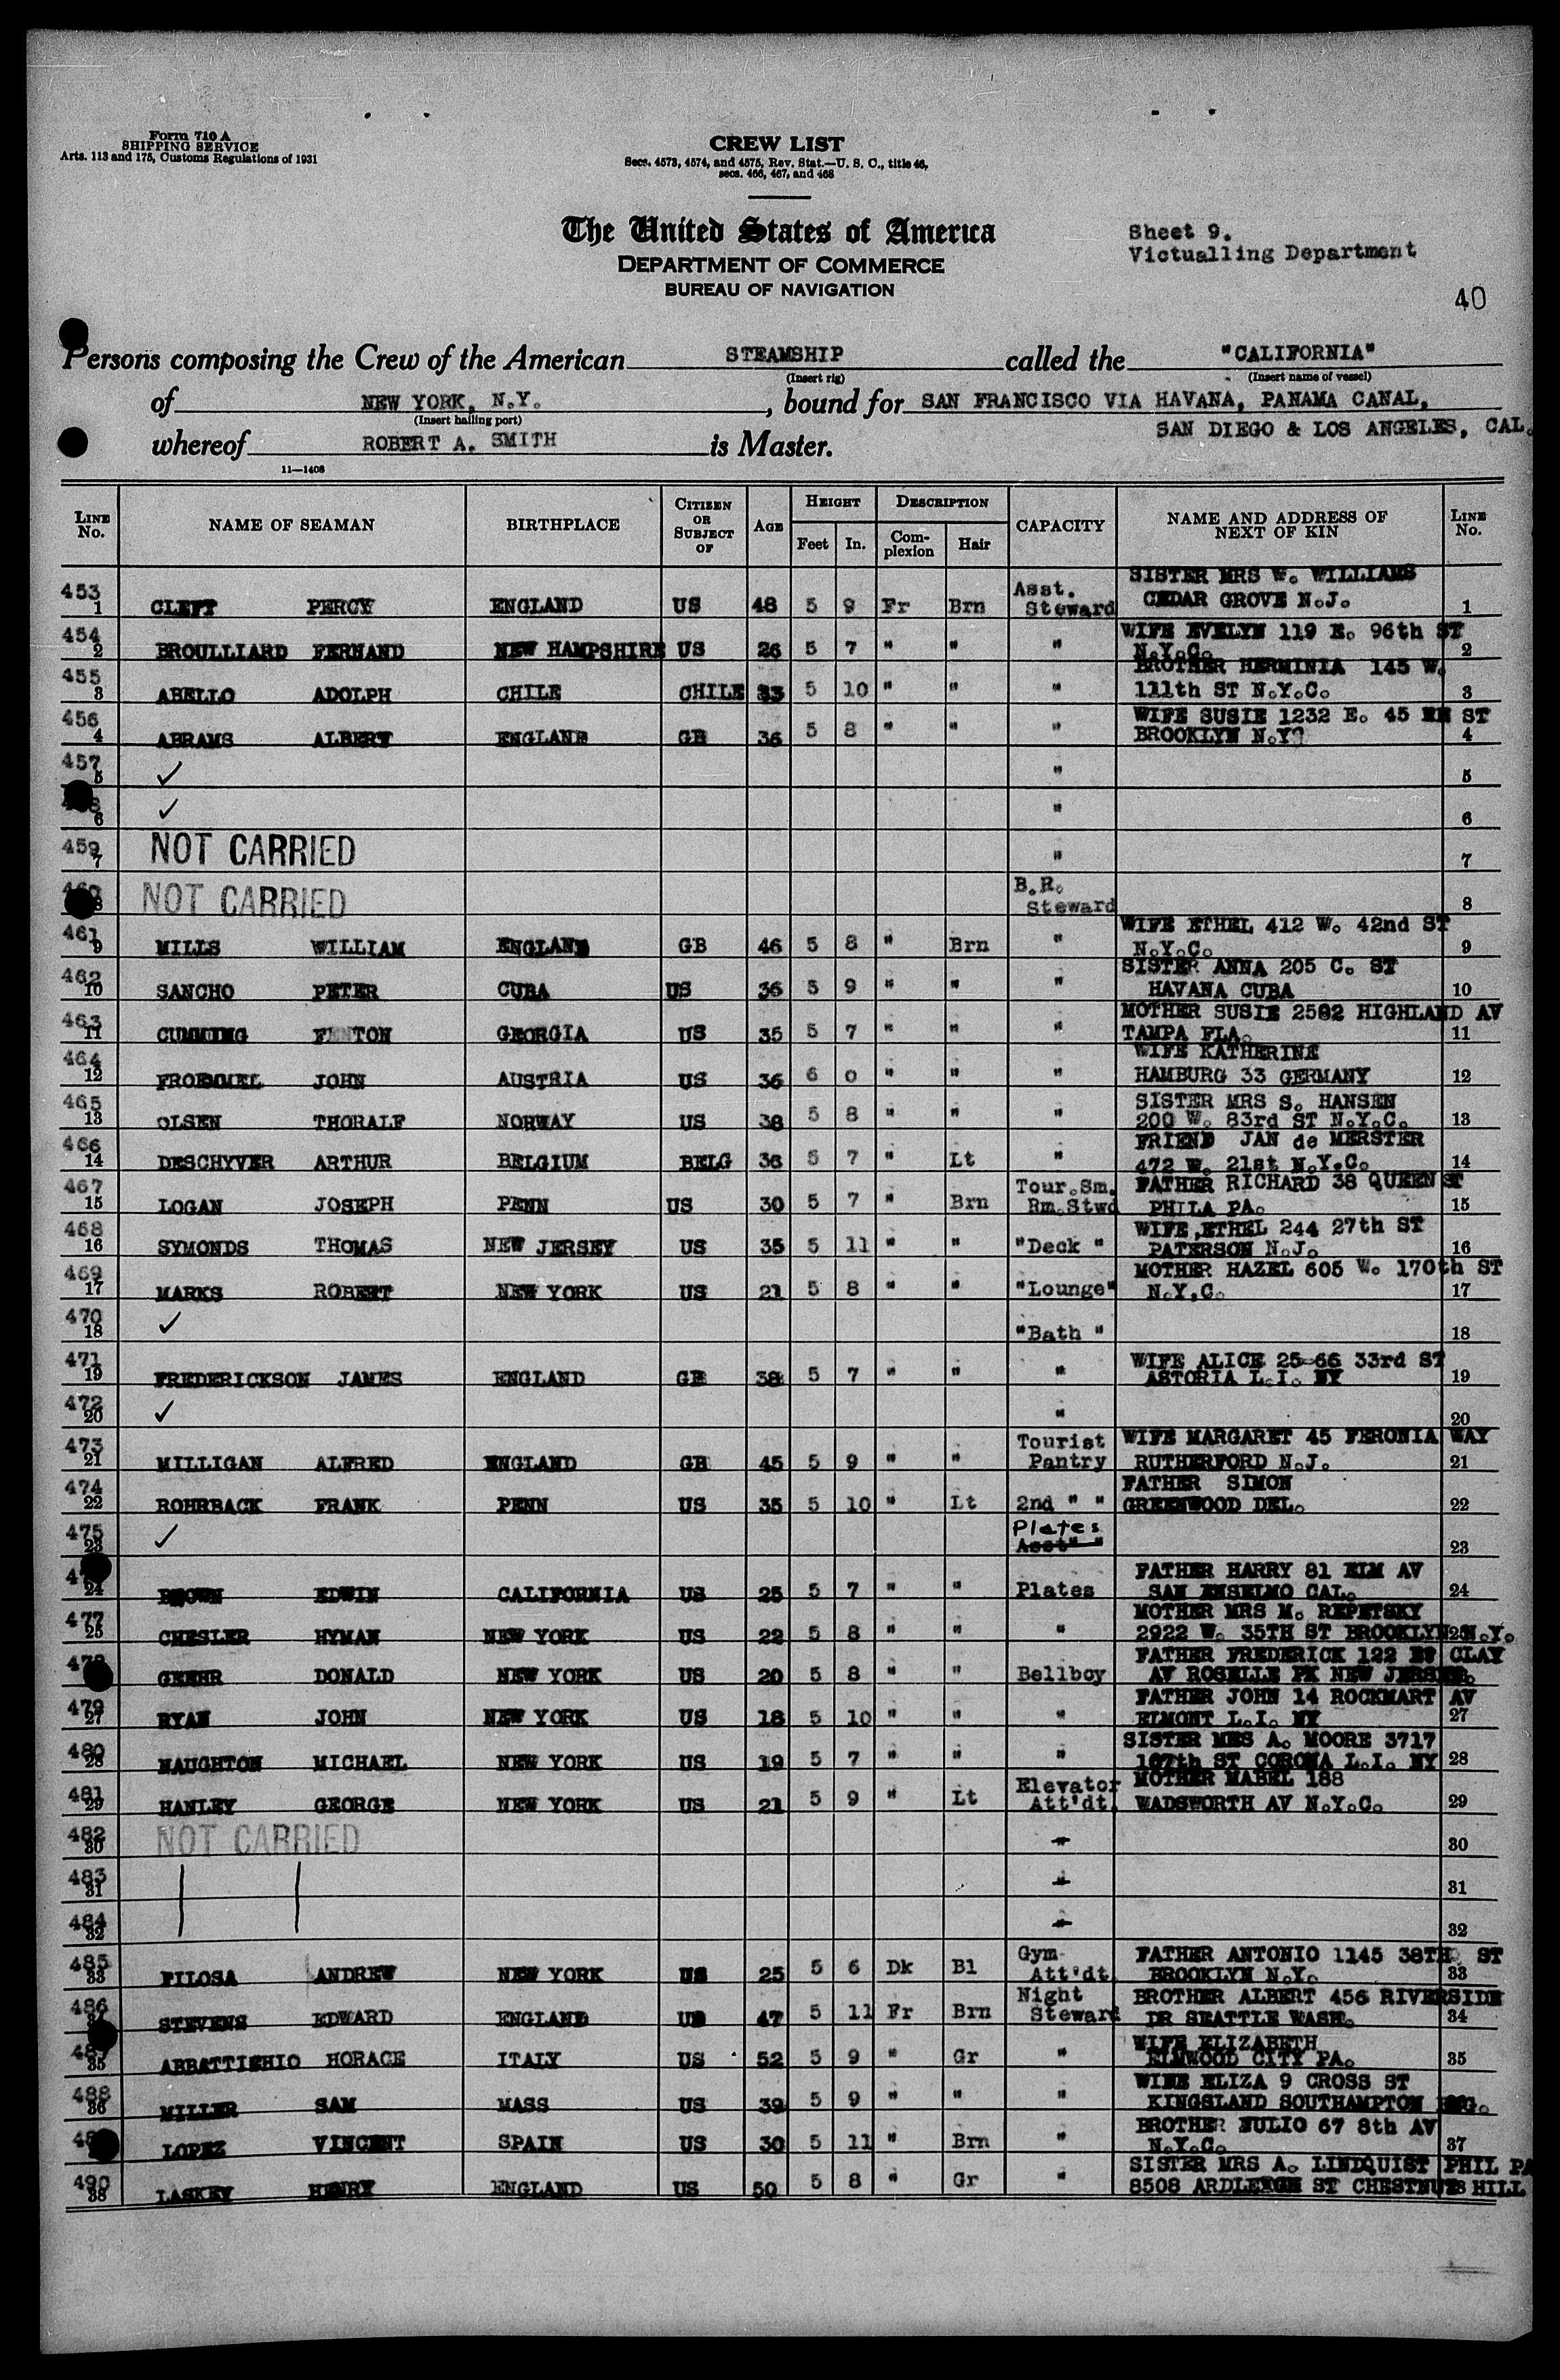 Form 710 A
SHIPPING SERVICE
Arts. 113 and 175, Customs Regulations of 1931
CREW LIST
Secs. 4573, 4574, and 4575, Rev. Stat.—U. S. C., title 46,
secs. 466, 467, and 468
The United States of America
DEPARTMENT OF COMMERCE
BUREAU OF NAVIGATION
Sheet 9.
Victualling Department
40
Persons composing the Crew of the American STEAMSHIP called the "CALIFORNIA"
(Insert rig) (Insert name of vessel)
of NEW YORK, N.Y. , bound for SAN FRANCISCO VIA HAVANA, PANAMA CANAL,
(Insert hailing port)
SAN DIEGO & LOS ANGELES, CAL.
whereof ROBERT A. SMITH is Master.
11—1408
LINE No. NAME OF SEAMAN BIRTHPLACE CITIZEN OR SUBJECT OF AGE HEIGHT Feet In. DESCRIPTION Complexion Hair CAPACITY NAME AND ADDRESS OF NEXT OF KIN LINE No.
453 1 CLEFT PERCY ENGLAND US 48 5 9 Fr Brn Asst. Steward SISTER MRS W. WILLIAMS CEDAR GROVE N.J. 1
454 2 BROULLIARD FERNAND NEW HAMPSHIRE US 26 5 7 " " " WIFE EVELYN 119 E. 96th ST N.Y.C. 2
455 3 ABELLO ADOLPH CHILE CHILE 33 5 10 " " " BROTHER HERMINIA 145 W. 111th ST N.Y.C. 3
456 4 ABRAMS ALBERT ENGLAND GB 36 5 8 " " " WIFE SUSIE 1232 E. 45 ST BROOKLYN N.Y? 4
457 5 ✓ " 5
6 ✓ " 6
459 7 NOT CARRIED " 7
NOT CARRIED B.R. Steward 8
461 9 MILLS WILLIAM ENGLAND GB 46 5 8 " Brn " WIFE ETHEL 412 W. 42nd ST N.Y.C. 9
462 10 SANCHO PETER CUBA US 36 5 9 " " " SISTER ANNA 205 C. ST HAVANA CUBA 10
463 11 CUMMING FENTON GEORGIA US 35 5 7 " " " MOTHER SUSIE 2502 HIGHLAND AV TAMPA FLA. 11
464 12 FROEMMEL JOHN AUSTRIA US 36 6 0 " " " WIFE KATHERINE HAMBURG 33 GERMANY 12
465 13 OLSEN THORALF NORWAY US 38 5 8 " " " SISTER MRS S. HANSEN 200 W. 83rd ST N.Y.C. 13
466 14 DESCHYVER ARTHUR BELGIUM BELG 36 5 7 " Lt " FRIEND JAN de MERSTER 472 W. 21st N.Y.C. 14
467 15 LOGAN JOSEPH PENN US 30 5 7 " Brn Tour.Sm. Rm.Stwd FATHER RICHARD 38 QUEEN ST PHILA PA. 15
468 16 SYMONDS THOMAS NEW JERSEY US 35 5 11 " " "Deck " WIFE,ETHEL 244 27th ST PATERSON N.J. 16
469 17 MARKS ROBERT NEW YORK US 21 5 8 " " "Lounge" MOTHER HAZEL 605 W. 170th ST N.Y.C. 17
470 18 ✓ "Bath " 18
471 19 FREDERICKSON JAMES ENGLAND GB 38 5 7 " " " WIFE ALICE 25-66 33rd ST ASTORIA L.I. NY 19
472 20 ✓ " 20
473 21 MILLIGAN ALFRED ENGLAND GB 45 5 9 " " Tourist Pantry WIFE MARGARET 45 FERONIA WAY RUTHERFORD N.J. 21
474 22 ROHRBACK FRANK PENN US 35 5 10 " Lt 2nd " " FATHER SIMON GREENWOOD DEL. 22
475 23 ✓ Plates Asst" " 23
24 BROWN EDWIN CALIFORNIA US 25 5 7 " " Plates FATHER HARRY 81 ELM AV SAN ENSELMO CAL. 24
477 25 CHESLER HYMAN NEW YORK US 22 5 8 " " " MOTHER MRS M. REPETSKY 2922 W. 35TH ST BROOKLYN N.Y. 25
GEEHR DONALD NEW YORK US 20 5 8 " " Bellboy FATHER FREDERICK 122 CLAY AV ROSELLE PK NEW JERSEY.
479 27 RYAN JOHN NEW YORK US 18 5 10 " " " FATHER JOHN 14 ROCKMART AV ELMONT L.I. NY 27
480 28 NAUGHTON MICHAEL NEW YORK US 19 5 7 " " " SISTER MRS A. MOORE 3717 107th ST CORONA L.I. NY 28
481 29 HANLEY GEORGE NEW YORK US 21 5 9 " Lt Elevator Att'dt. MOTHER MABEL 188 WADSWORTH AV N.Y.C. 29
482 30 NOT CARRIED " 30
483 31 " 31
484 32 " 32
485 33 PILOSA ANDREW NEW YORK US 25 5 6 Dk Bl Gym Att'dt FATHER ANTONIO 1145 38TH ST BROOKLYN N.Y. 33
486 34 STEVENS EDWARD ENGLAND US 47 5 11 Fr Brn Night Steward BROTHER ALBERT 456 RIVERSIDE DR SEATTLE WASH. 34
35 ABBATTICHIO HORACE ITALY US 52 5 9 " Gr " WIFE ELIZABETH ELMWOOD CITY PA. 35
488 36 MILLER SAM MASS US 39 5 9 " " " WIFE ELIZA 9 CROSS ST KINGSLAND SOUTHAMPTON ENG.
LOPEZ VINCENT SPAIN US 30 5 11 " Brn " BROTHER JULIO 67 8th AV N.Y.C. 37
490 38 LASKEY HENRY ENGLAND US 50 5 8 " Gr " SISTER MRS A. LINDQUIST PHIL PA 8508 ARDLEIGH ST CHESTNUT HILL